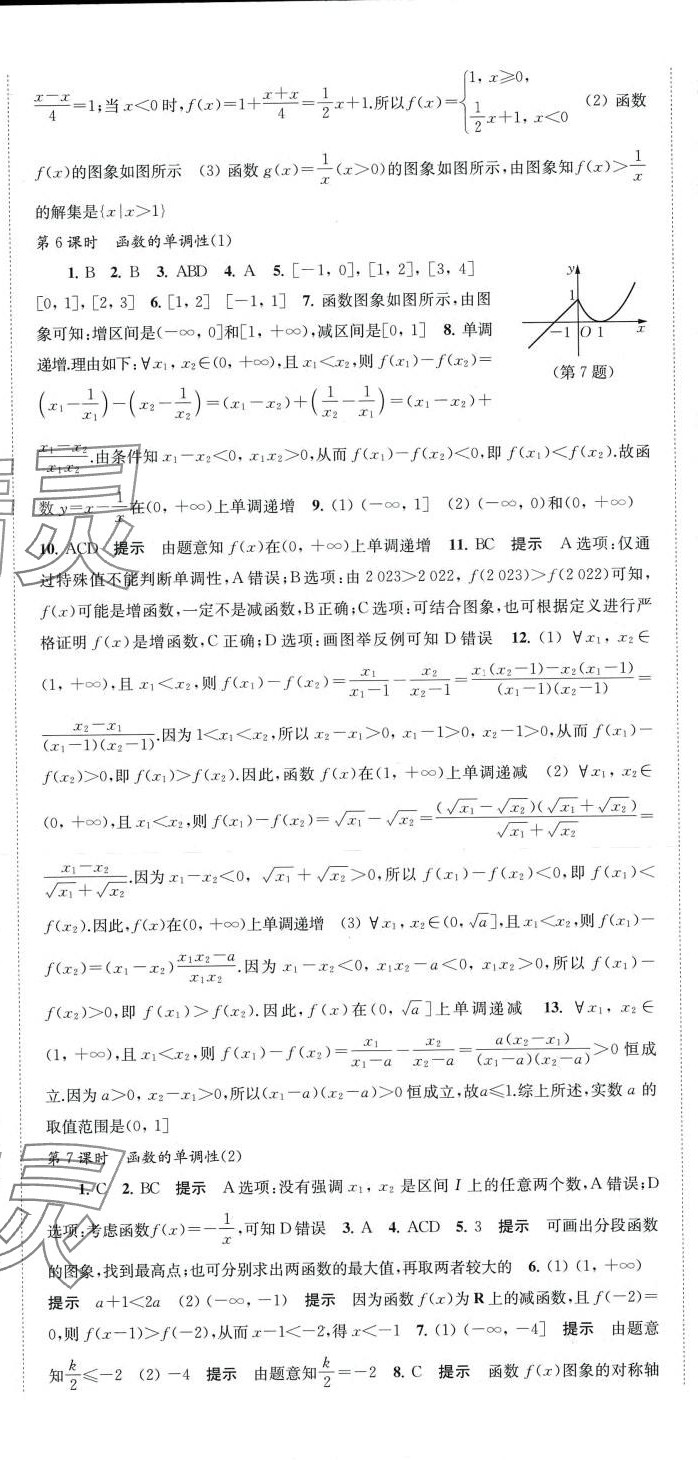 $\frac{x-x}{4}$=1;当 x<0 时,f(x)=1+$\frac{x+x}{4}$=$\frac{1}{2}$x+1.所以 f(x)=$\begin{cases}1, x≥0,\\ \frac{1}{2}x+1, x<0\end{cases}$ (2) 函数
f(x)的图象如图所示 (3) 函数 g(x)=$\frac{1}{x}$(x>0)的图象如图所示,由图象知 f(x)>$\frac{1}{x}$
的解集是{x|x>1}
第 6 课时 函数的单调性(1)
1. B 2. B 3. ABD 4. A 5. [−1, 0],[1, 2],[3, 4]
[0, 1],[2, 3] 6. [1, 2] [−1, 1] 7. 函数图象如图所示,由图
象可知:增区间是(−∞, 0]和[1, +∞),减区间是[0, 1] 8. 单调
递增.理由如下:∀x₁, x₂∈(0, +∞),且 x₁<x₂,则 f(x₁)−f(x₂)=
y
1
−1 O 1 x
(第 7 题)
$\left(x_1-\frac{1}{x_1}\right)-\left(x_2-\frac{1}{x_2}\right)$=(x₁−x₂)+$\left(\frac{1}{x_2}-\frac{1}{x_1}\right)$=(x₁−x₂)+
$\frac{x_1-x_2}{x_1x_2}$.由条件知 x₁−x₂<0, x₁x₂>0,从而 f(x₁)−f(x₂)<0,即 f(x₁)<f(x₂).故函
数 y=x−$\frac{1}{x}$在(0, +∞)上单调递增 9. (1) (−∞, 1] (2) (−∞, 0)和(0, +∞)
10. ACD 提示 由题意知 f(x)在(0, +∞)上单调递增 11. BC 提示 A 选项:仅通
过特殊值不能判断单调性,A 错误;B 选项:由 2 023>2 022, f(2 023)>f(2 022)可知,
f(x)可能是增函数,一定不是减函数,B 正确;C 选项:可结合图象,也可根据定义进行严
格证明 f(x)是增函数,C 正确;D 选项:画图举反例可知 D 错误 12. (1) ∀x₁, x₂∈
(1, +∞),且 x₁<x₂,则 f(x₁)−f(x₂)=$\frac{x_1}{x_1-1}-\frac{x_2}{x_2-1}=\frac{x_1(x_2-1)-x_2(x_1-1)}{(x_1-1)(x_2-1)}$=
$\frac{x_2-x_1}{(x_1-1)(x_2-1)}$.因为 1<x₁<x₂,所以 x₂−x₁>0, x₁−1>0, x₂−1>0,从而 f(x₁)−
f(x₂)>0,即 f(x₁)>f(x₂).因此,函数 f(x)在(1, +∞)上单调递减 (2) ∀x₁, x₂∈
(0, +∞),且 x₁<x₂,则 f(x₁)−f(x₂)=$\sqrt{x_1}-\sqrt{x_2}=\frac{(\sqrt{x_1}-\sqrt{x_2})(\sqrt{x_1}+\sqrt{x_2})}{\sqrt{x_1}+\sqrt{x_2}}$=
$\frac{x_1-x_2}{\sqrt{x_1}+\sqrt{x_2}}$.因为 x₁−x₂<0, $\sqrt{x_1}+\sqrt{x_2}$>0,所以 f(x₁)−f(x₂)<0,即 f(x₁)<
f(x₂).因此,f(x)在(0, +∞)上单调递增 (3) ∀x₁, x₂∈(0, $\sqrt{a}$],且 x₁<x₂,则 f(x₁)−
f(x₂)=(x₁−x₂)$\frac{x_1x_2-a}{x_1x_2}$.因为 x₁−x₂<0, x₁x₂−a<0, x₁x₂>0,所以 f(x₁)−
f(x₂)>0,即 f(x₁)>f(x₂).因此, f(x)在(0, $\sqrt{a}$]上单调递减 13. ∀x₁, x₂∈
(1, +∞),且 x₁<x₂,则 f(x₁)−f(x₂)=$\frac{x_1}{x_1-a}-\frac{x_2}{x_2-a}=\frac{a(x_2-x_1)}{(x_1-a)(x_2-a)}$>0 恒成
立.因为 a>0, x₂−x₁>0,所以(x₁−a)(x₂−a)>0 恒成立,故a≤1.综上所述,实数 a 的
取值范围是(0, 1]
第 7 课时 函数的单调性(2)
1. C 2. BC 提示 A 选项:没有强调 x₁, x₂ 是区间 I 上的任意两个数,A 错误;D
选项:考虑函数 f(x)=−$\frac{1}{x}$,可知 D 错误 3. A 4. ACD 5. 3 提示 可画出分段函数
的图象,找到最高点;也可分别求出两函数的最大值,再取两者较大的 6. (1) (1, +∞)
提示 a+1<2a (2) (−∞, −1) 提示 因为函数 f(x)为 R 上的减函数,且 f(−2)=
0,则 f(x−1)>f(−2),从而 x−1<−2,得 x<−1 7. (1) (−∞, −4] 提示 由题意
知$\frac{k}{2}$≤−2 (2) −4 提示 由题意知$\frac{k}{2}$=−2 8. C 提示 函数 f(x)图象的对称轴
精灵
灵